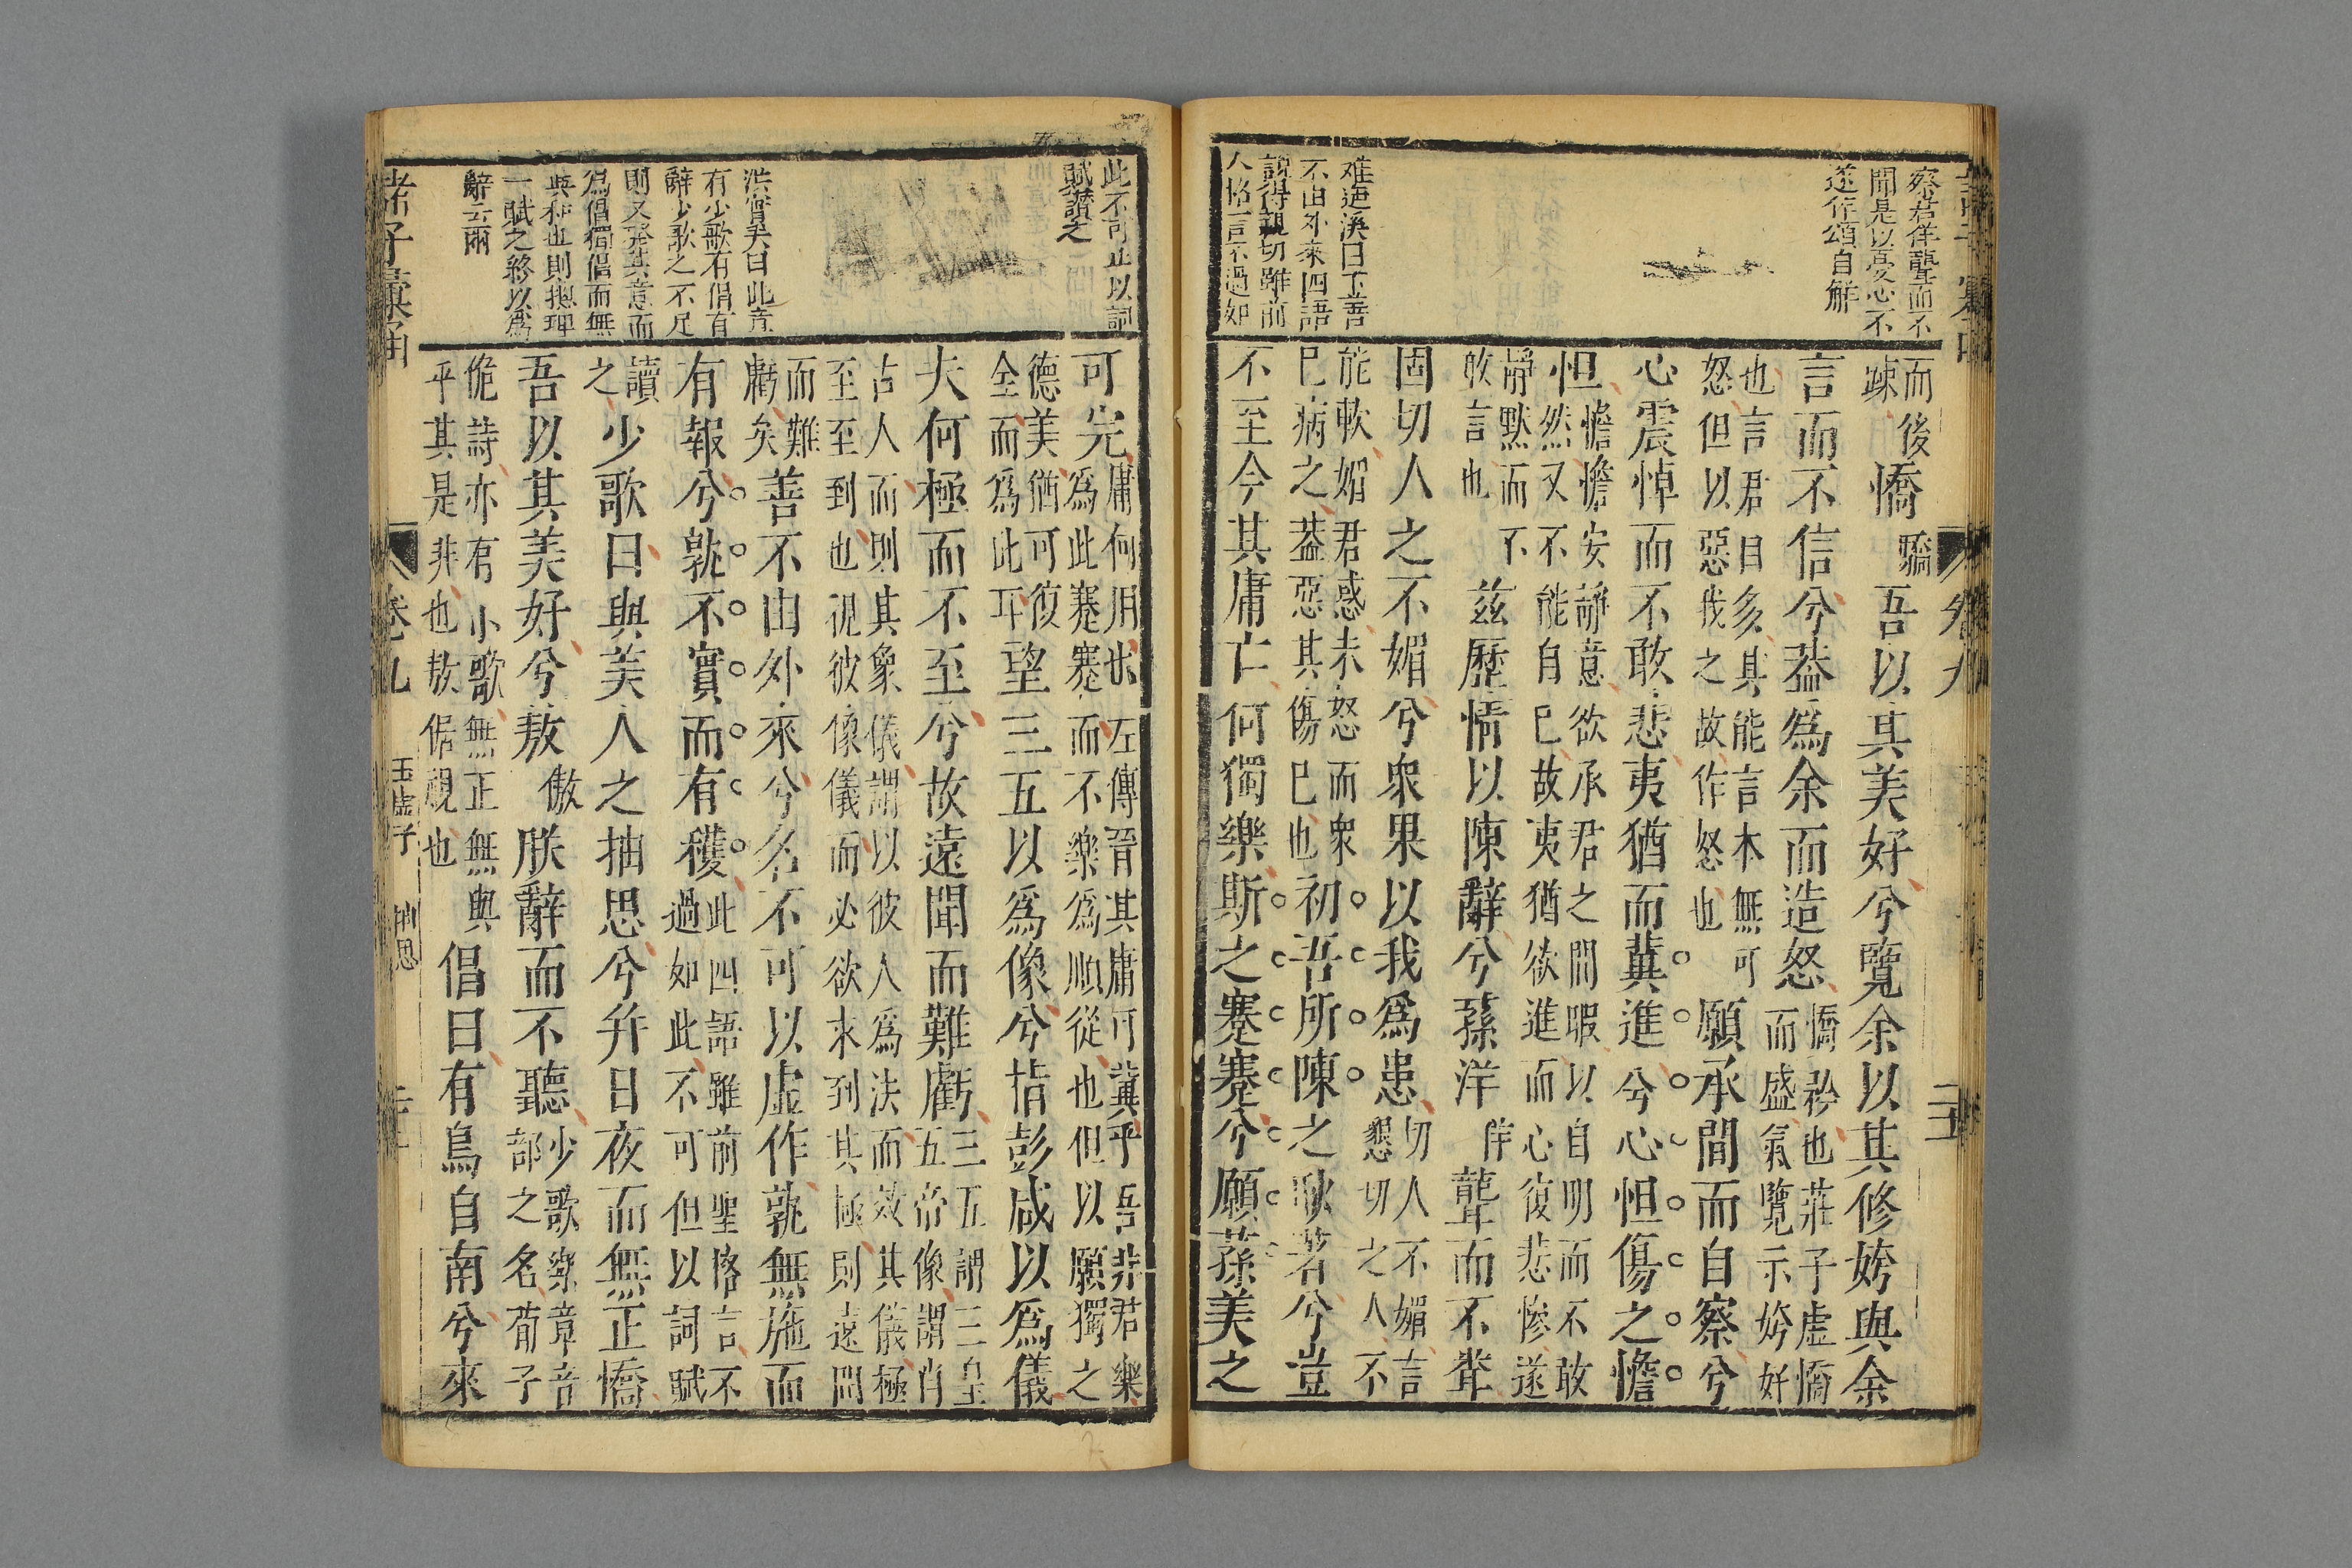 察君佯聾而不
聞是以憂心不
遂作頌自解
不由外來四語
說得親切雖前
人格言不過如
而後
疎
憍
驕
吾以其美好兮覽余以其修姱與余
言而不信兮葢爲余而造怒
憍矜也莊子虛憍
而盛氣覽示姱好
也言君自多其能言本無可
怒但以惡我之故作怒也
願承間而自察兮
心震悼而不敢悲夷猶而兾進兮心怛傷之憺
怛
憺憺安靜意欲承君之間暇以自明而不敢
然又不能自已故夷猶欲進而心復悲慘遂
靜默而不
敢言也
茲歷情以陳辭兮蓀洋
佯
聾而不聞
固切人之不媚兮衆果以我爲患
切人不媚言
懇切之人不
能軟媚君惑未怒而衆
巳病之葢惡其傷巳也
初吾所陳之耿著兮豈
不至今其庸亡何獨樂斯之蹇蹇兮願蓀美之
卷九
此不可止以詞
賦讚之
有少歌有倡有
辭少歌之不足
則又發其意而
爲倡獨倡而無
與和也則揔理
一賦之終以爲
辭云爾
可完
庸何用也左傳晉其庸可兾乎吾非君樂
爲此蹇蹇而不樂爲順從也但以願獨之
德美猶可復
全而爲此耳
望三五以爲像兮指彭咸以爲儀
夫何極而不至兮故遠聞而難虧
三五謂三皇
五帝像謂肖
古人而則其象儀謂以彼人爲法而效其儀極
至至到也視彼像儀而必欲求到其極則遠聞
而難
虧矣
善不由外來兮名不可以虛作孰無施而
有報兮孰不實而有穫
此四語雖前聖格言不
過如此不可但以詞賦
讀
之
少歌曰與美人之抽思兮并日夜而無正憍
吾以其美好兮敖
傲
朕辭而不聽
少歌樂章音
節之名荀子
佹詩亦有小歌無正無與
平其是非也敖倨視也
倡曰有鳥自南兮來
諸子彙函
卷九
玉虛子
抽思